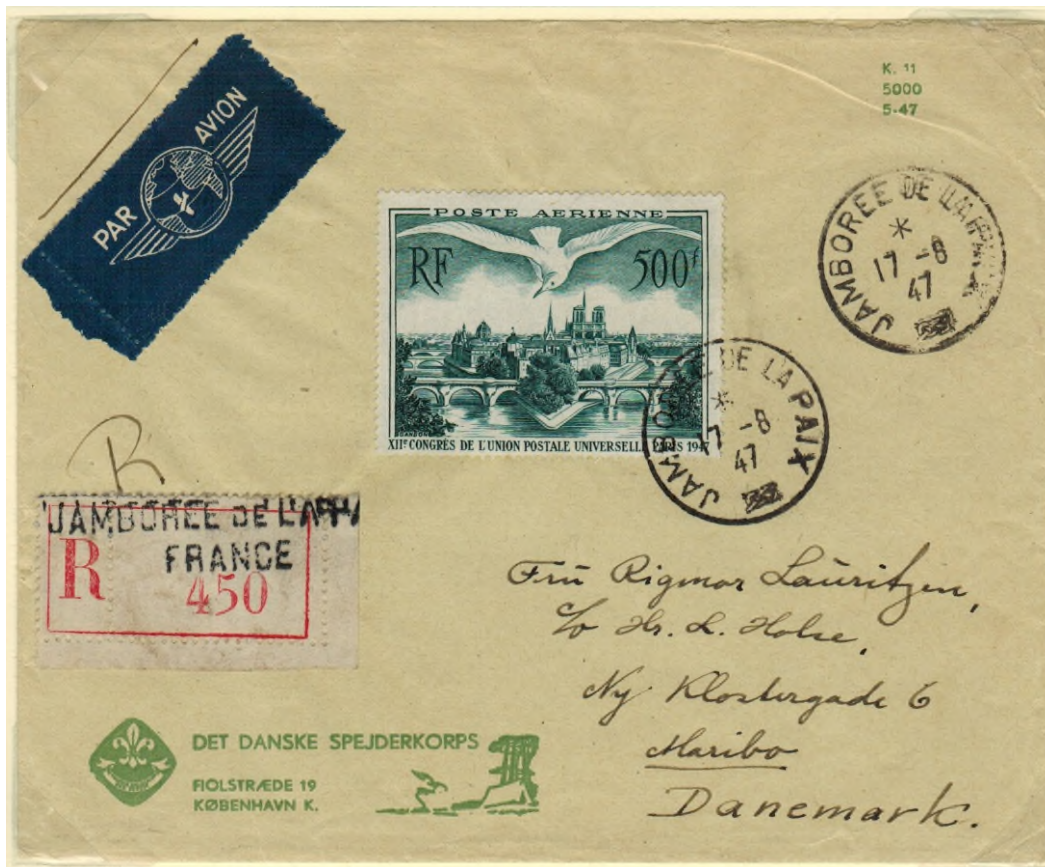 PAR AVION
K. 11
5000
5-47
POSTE AERIENNE
RF 500f
XIIe CONGRÈS DE L'UNION POSTALE UNIVERSELLE PARIS 1947
JAMBOREE DE LA PAIX
*
17 -8
47
JAMBOREE DE LA PAIX
*
17 -8
47
R
JAMBOREE DE LA PA
FRANCE
R 450
Fru Rigmor Lauritzen,
c/o Hr. L. Holse,
Ny Klostergade 6
Maribo
Danemark.
DET DANSKE SPEJDERKORPS
FIOLSTRÆDE 19
KØBENHAVN K.